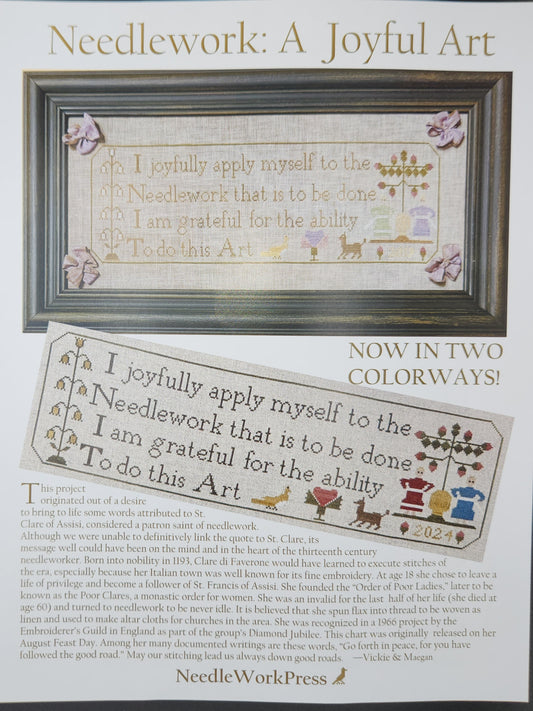 Needlework: A Joyful Art
I joyfully apply myself to the
Needlework that is to be done
I am grateful for the ability
To do this Art
NOW IN TWO
COLORWAYS!
I joyfully apply myself to the
Needlework that is to be done
I am grateful for the ability
To do this Art
2024
This project
originated out of a desire
to bring to life some words attributed to St.
Clare of Assisi, considered a patron saint of needlework.
Although we were unable to definitively link the quote to St. Clare, its
message well could have been on the mind and in the heart of the thirteenth century
needleworker. Born into nobility in 1193, Clare di Faverone would have learned to execute stitches of
the era, especially because her Italian town was well known for its fine embroidery. At age 18 she chose to leave a
life of privilege and become a follower of St. Francis of Assisi. She founded the "Order of Poor Ladies," later to be
known as the Poor Clares, a monastic order for women. She was an invalid for the last half of her life (she died at
age 60) and turned to needlework to be never idle. It is believed that she spun flax into thread to be woven as
linen and used to make altar cloths for churches in the area. She was recognized in a 1966 project by the
Embroiderer's Guild in England as part of the group's Diamond Jubilee. This chart was originally released on her
August Feast Day. Among her many documented writings are these words, "Go forth in peace, for you have
followed the good road." May our stitching lead us always down good roads. —Vickie & Maegan
NeedleWorkPress